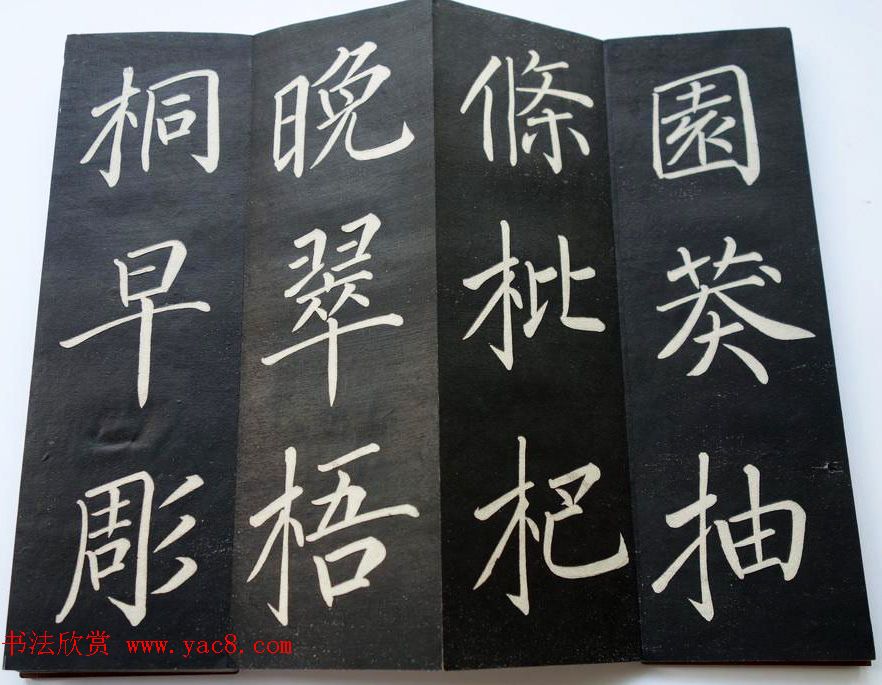 園葵抽
條枇杷
晚翠梧
桐早彫
书法欣赏 www.yac8.com